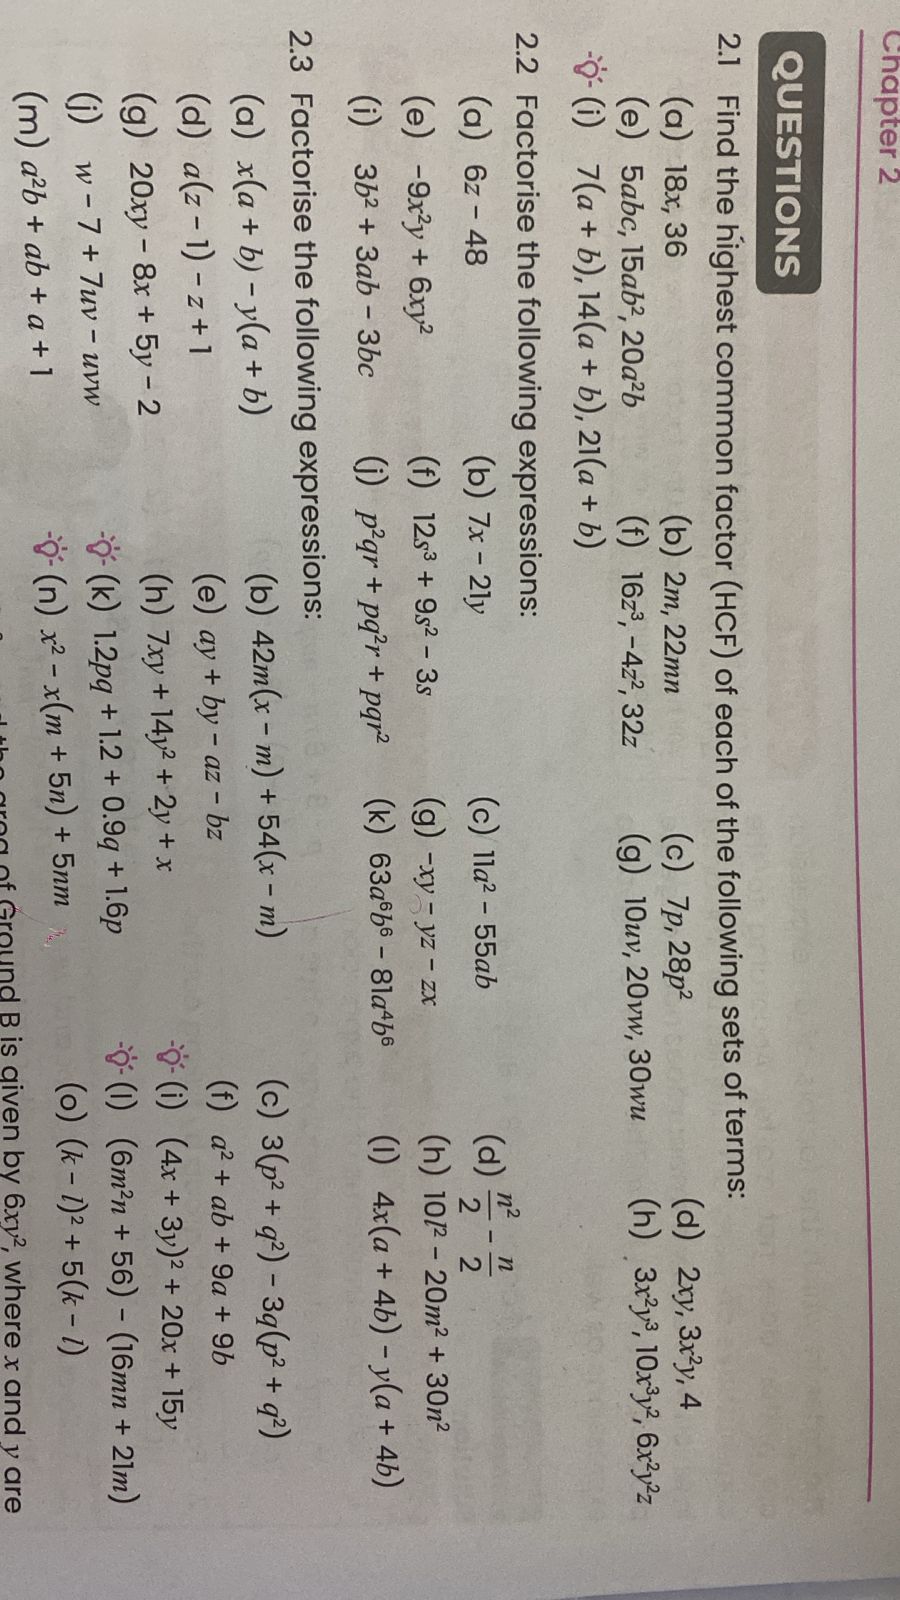 Chapter 2
QUESTIONS
2.1 Find the highest common factor (HCF) of each of the following sets of terms:
(a) 18x, 36 (b) 2m, 22mn (c) 7p, 28p² (d) 2xy, 3x²y, 4
(e) 5abc, 15ab², 20a²b (f) 16z³, -4z², 32z (g) 10uv, 20vw, 30wu (h) 3x²y³, 10x³y², 6x²y²z
(i) 7(a + b), 14(a + b), 21(a + b)
2.2 Factorise the following expressions:
(a) 6z - 48 (b) 7x - 21y (c) 11a² - 55ab (d) n²/2 - n/2
(e) -9x²y + 6xy² (f) 12s³ + 9s² - 3s (g) -xy - yz - zx (h) 10l² - 20m² + 30n²
(i) 3b² + 3ab - 3bc (j) p²qr + pq²r + pqr² (k) 63a⁶b⁶ - 81a⁴b⁶ (l) 4x(a + 4b) - y(a + 4b)
2.3 Factorise the following expressions:
(a) x(a + b) - y(a + b) (b) 42m(x - m) + 54(x - m) (c) 3(p² + q²) - 3q(p² + q²)
(d) a(z - 1) - z + 1 (e) ay + by - az - bz (f) a² + ab + 9a + 9b
(g) 20xy - 8x + 5y - 2 (h) 7xy + 14y² + 2y + x (i) (4x + 3y)² + 20x + 15y
(j) w - 7 + 7uv - uvw (k) 1.2pq + 1.2 + 0.9q + 1.6p (l) (6m²n + 56) - (16mn + 21m)
(m) a²b + ab + a + 1 (n) x² - x(m + 5n) + 5nm (o) (k - l)² + 5(k - l)
of Ground B is given by 6xy², where x and y are